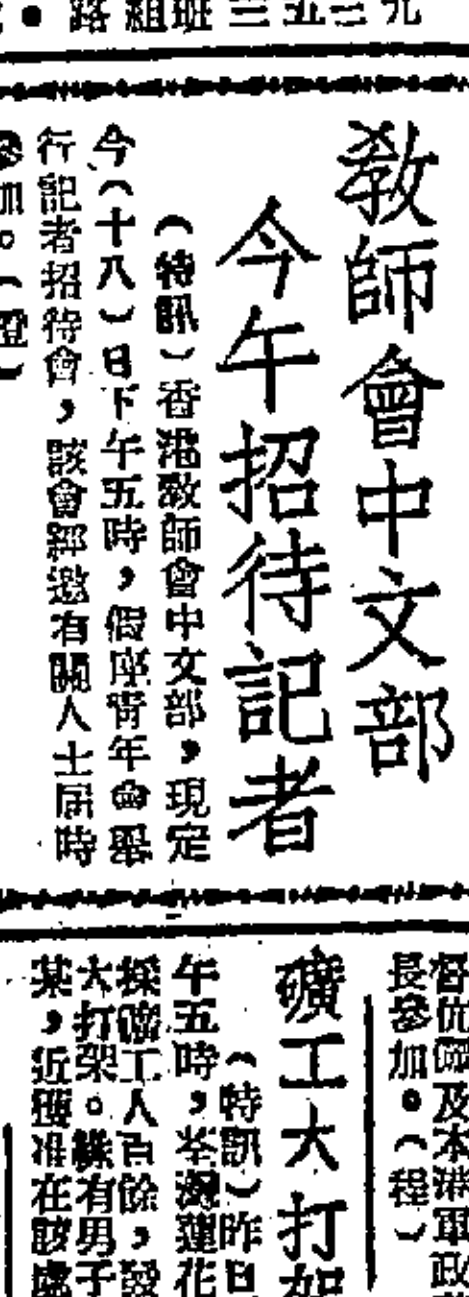 九二五三三班組路●
教師會中文部
今午招待記者
（特訊）香港敎師會中文部，現定
今（十八）日下午五時，假座靑年會舉
行記者招待會，該會經邀有關人士屆時
參加。（證）
督伉儷及本港軍政
長參加●（程）
礦工大打架
（特訊）昨日
午五時，荃灣蓮花
採礦工人百餘，發
大打架。緣有男子
某，近獲准在該處